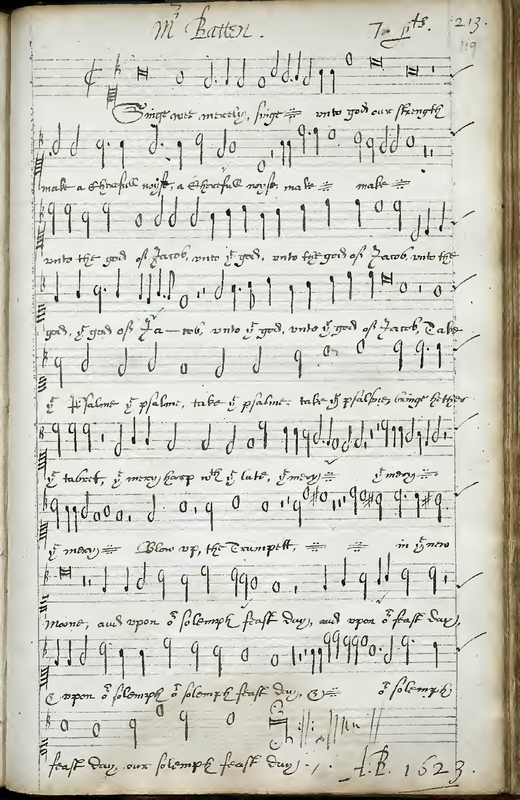 Mr Batten. 7 pts. 213.
119
Singe wee merely, singe unto god our strength
make a Cheerfull noyse, a Cheerfull noyse, make make
unto the god of Jacob, unto ye god, unto the god of Jacob, unto the
god, ye god of Ja-cob, unto ye god, unto ye god of Jacob, Take
ye Psalme ye psalme, take ye psalme, take ye psalme, bringe hether
ye tabret, ye mery harp wth ye lute, ye mery ye mery
ye mery Blow up, the Trumpett, in ye new
moone, and upon or solemph feast day, and upon or feast day,
& upon or solemph or solemph feast day, & or solemph
feast day, our solemph feast day.
A.B. 1623.